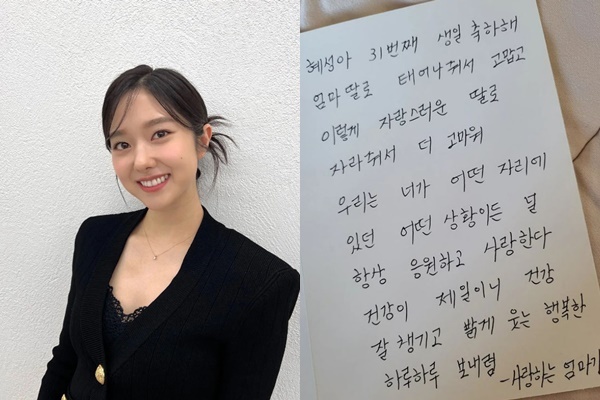 혜성아 31번째 생일 축하해
엄마 딸로 태어나줘서 고맙고
이렇게 자랑스러운 딸로
자라줘서 더 고마워
우리는 너가 어떤 자리에
있던 어떤 상황이든 널
항상 응원하고 사랑한다
건강이 제일이니 건강
잘 챙기고 밝게 웃는 행복한
하루하루 보내렴 -사랑하는 엄마가